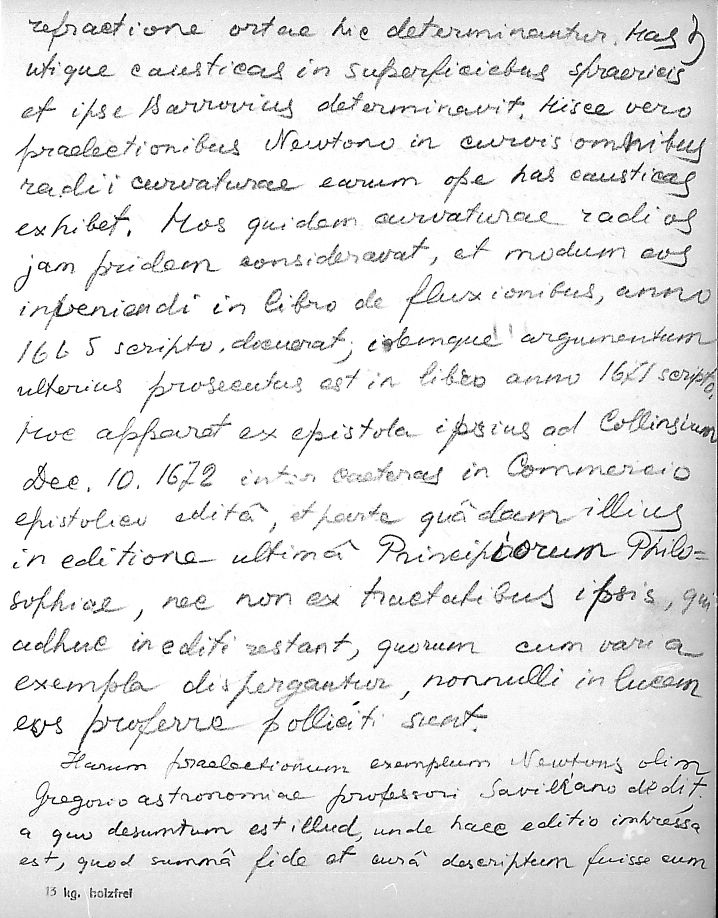 refractione ortae hic determinantur. Has
utique causticas in superficiebus spraericis
et ipse Barrovius determinavit. Hisce vero
praelectionibus Newtono in curvis omnibus
radii curvaturae earum ope has causticas
exhibet. Hos quidem curvaturae radios
jam pridem consideravat, et modum eos
inveniendi in libro de fluxionibus, anno
1665 scripto, docuerat; idemque argumentum
ulterius prosecutus est in libro anno 1671 scripto.
Hoc apparet ex epistola ipsius ad Collinsium
Dec. 10. 1672 inter caeteras in Commercio
epistolico editâ, et parte quâdam illius
in editione ultimâ Principiorum Philo=
sophiae, nec non ex tractatibus ipsis, qui
adhuc inediti restant, quorum cum varia
exempla dispergantur, nonnulli in lucem
eos proferre polliciti sunt.
Harum praelectionum exemplum Newtons olim
Gregorio astronomiae professori Saviliano dedit.
a quo desumtum est illud, unde haec editio impressa
est, quod summâ fide et curâ descriptum fuisse cum
13 kg. holzfrei